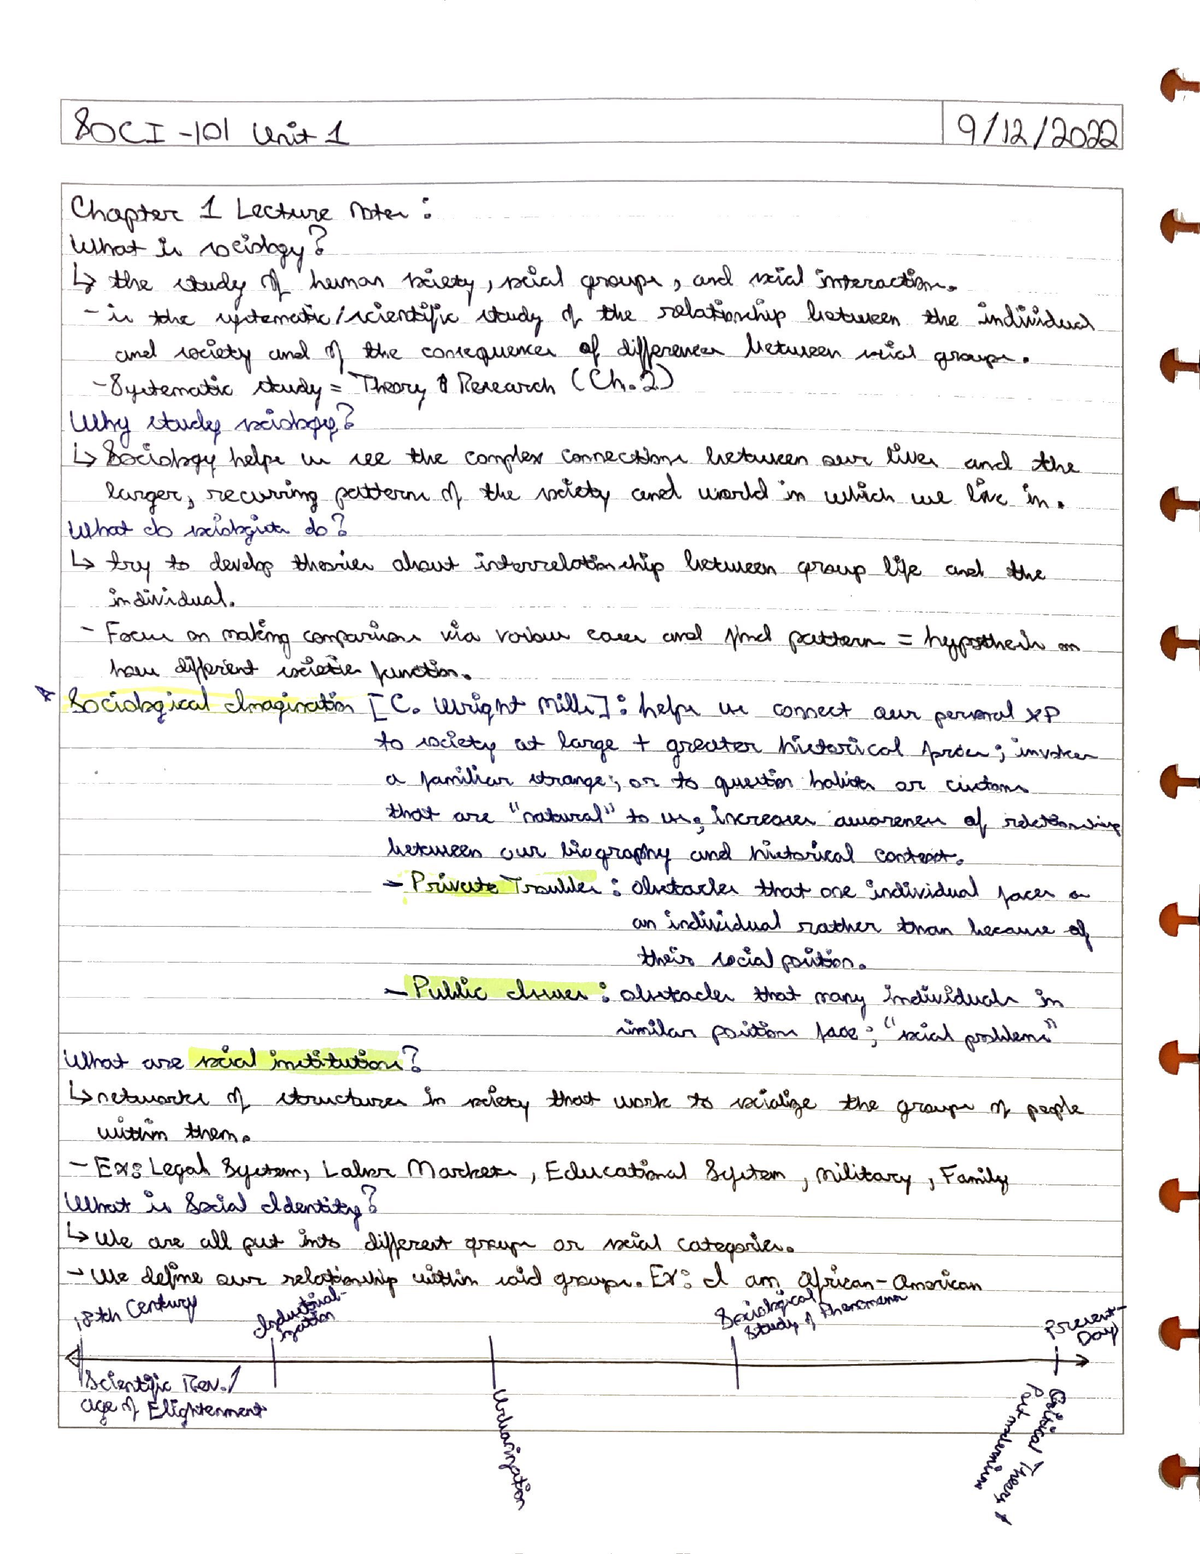 SOCI-101 Unit 1
9/12/2022
Chapter 1 Lecture Notes:
What is sociology?
↳ the study of human society, social groups, and social interaction.
- is the systematic/scientific study of the relationship between the individual
and society and of the consequences of differences between social groups.
- Systematic study = Theory & Research (Ch.2)
Why study sociology?
↳ Sociology helps us see the complex connections between our lives and the
larger, recurring patterns of the society and world in which we live in.
What do sociologists do?
↳ try to develop theories about interrelationship between group life and the
individual.
- Focus on making comparisons via various cases and find patterns = hypothesis on
how different societies function.
Sociological Imagination [C. Wright Mills]: helps us connect our personal XP
to society at large + greater historical forces; invokes
a familiar strange; or to question habits or customs
that are "natural" to us; increases awareness of relationship
between our biography and historical context.
- Private Troubles: obstacles that one individual faces as
an individual rather than because of
their social position.
- Public Issues: obstacles that many individuals in
similar positions face; "social problems"
What are social institutions?
↳ networks of structures in society that work to socialize the groups of people
within them.
- Exs: Legal System, Labor Markets, Educational System, Military, Family
What is Social Identity?
↳ We are all put into different groups or social categories.
- We define our relationship within said groups. Ex: I am African-American
18th Century
Industrial-
ization
Sociological
Study of Phenomena
Present-
Day
Scientific Rev./
age of Elightenment
Urbanization
Critical Theory &
Postmodernism